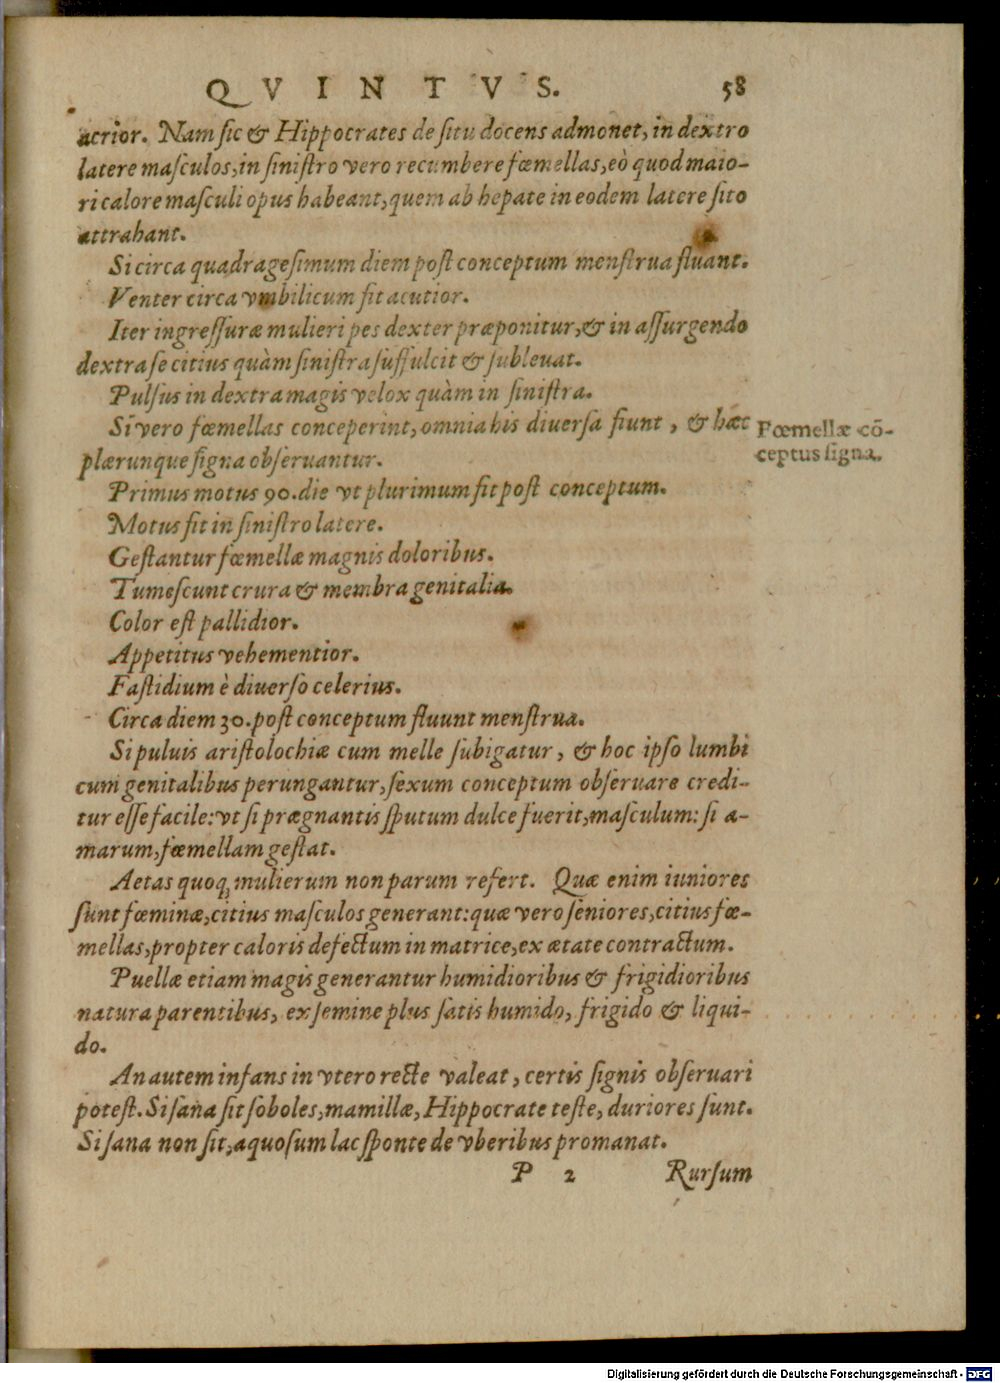 QVINTVS. 58
acrior. Nam sic & Hippocrates de situ docens admonet, in dextro
latere masculos, in sinistro vero recumbere fœmellas, eò quod maio-
ri calore masculi opus habeant, quem ab hepate in eodem latere sito
attrahant.
Si circa quadragesimum diem post conceptum menstrua fluant.
Venter circa vmbilicum fit acutior.
Iter ingressuræ mulieri pes dexter præponitur, & in assurgendo
dextra se citius quàm sinistra suffulcit & subleuat.
Pulsus in dextra magis velox quàm in sinistra.
Si vero fœmellas conceperint, omnia his diuersa fiunt, & hæc
plærunque signa obseruantur.
Fœmellæ cõ-
ceptus signa.
Primus motus 90. die vt plurimum fit post conceptum.
Motus fit in sinistro latere.
Gestantur fœmellæ magnis doloribus.
Tumescunt crura & membra genitalia.
Color est pallidior.
Appetitus vehementior.
Fastidium è diuerso celerius.
Circa diem 30. post conceptum fluunt menstrua.
Si puluis aristolochiæ cum melle subigatur, & hoc ipso lumbi
cum genitalibus perungantur, sexum conceptum obseruare credi-
tur esse facile: vt si prægnantis sputum dulce fuerit, masculum: si a-
marum, fœmellam gestat.
Aetas quoq; mulierum non parum refert. Quæ enim iuniores
sunt fœminæ, citius masculos generant: quæ vero seniores, citius fœ-
mellas, propter caloris defectum in matrice, ex ætate contractum.
Puellæ etiam magis generantur humidioribus & frigidioribus
natura parentibus, ex semine plus satis humido, frigido & liqui-
do.
An autem infans in vtero recte valeat, certis signis obseruari
potest. Si sana sit soboles, mamillæ, Hippocrate teste, duriores sunt.
Si sana non sit, aquosum lac sponte de vberibus promanat.
P 2 Rursum
Digitalisierung gefördert durch die Deutsche Forschungsgemeinschaft - DFG